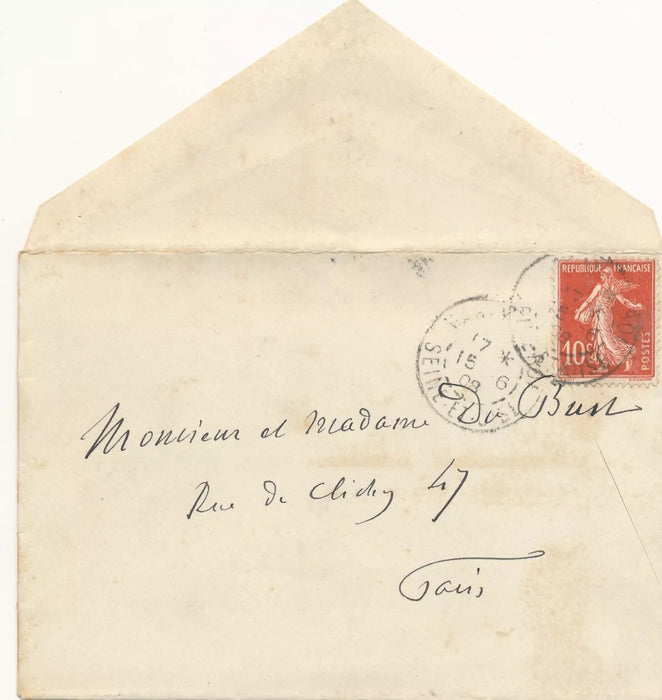 REPUBLIQUE FRANÇAISE
10c
POSTES
17 *
15 6
08
SEINE
Monsieur et Madame Du Bust
Rue de Clichy 47
Paris